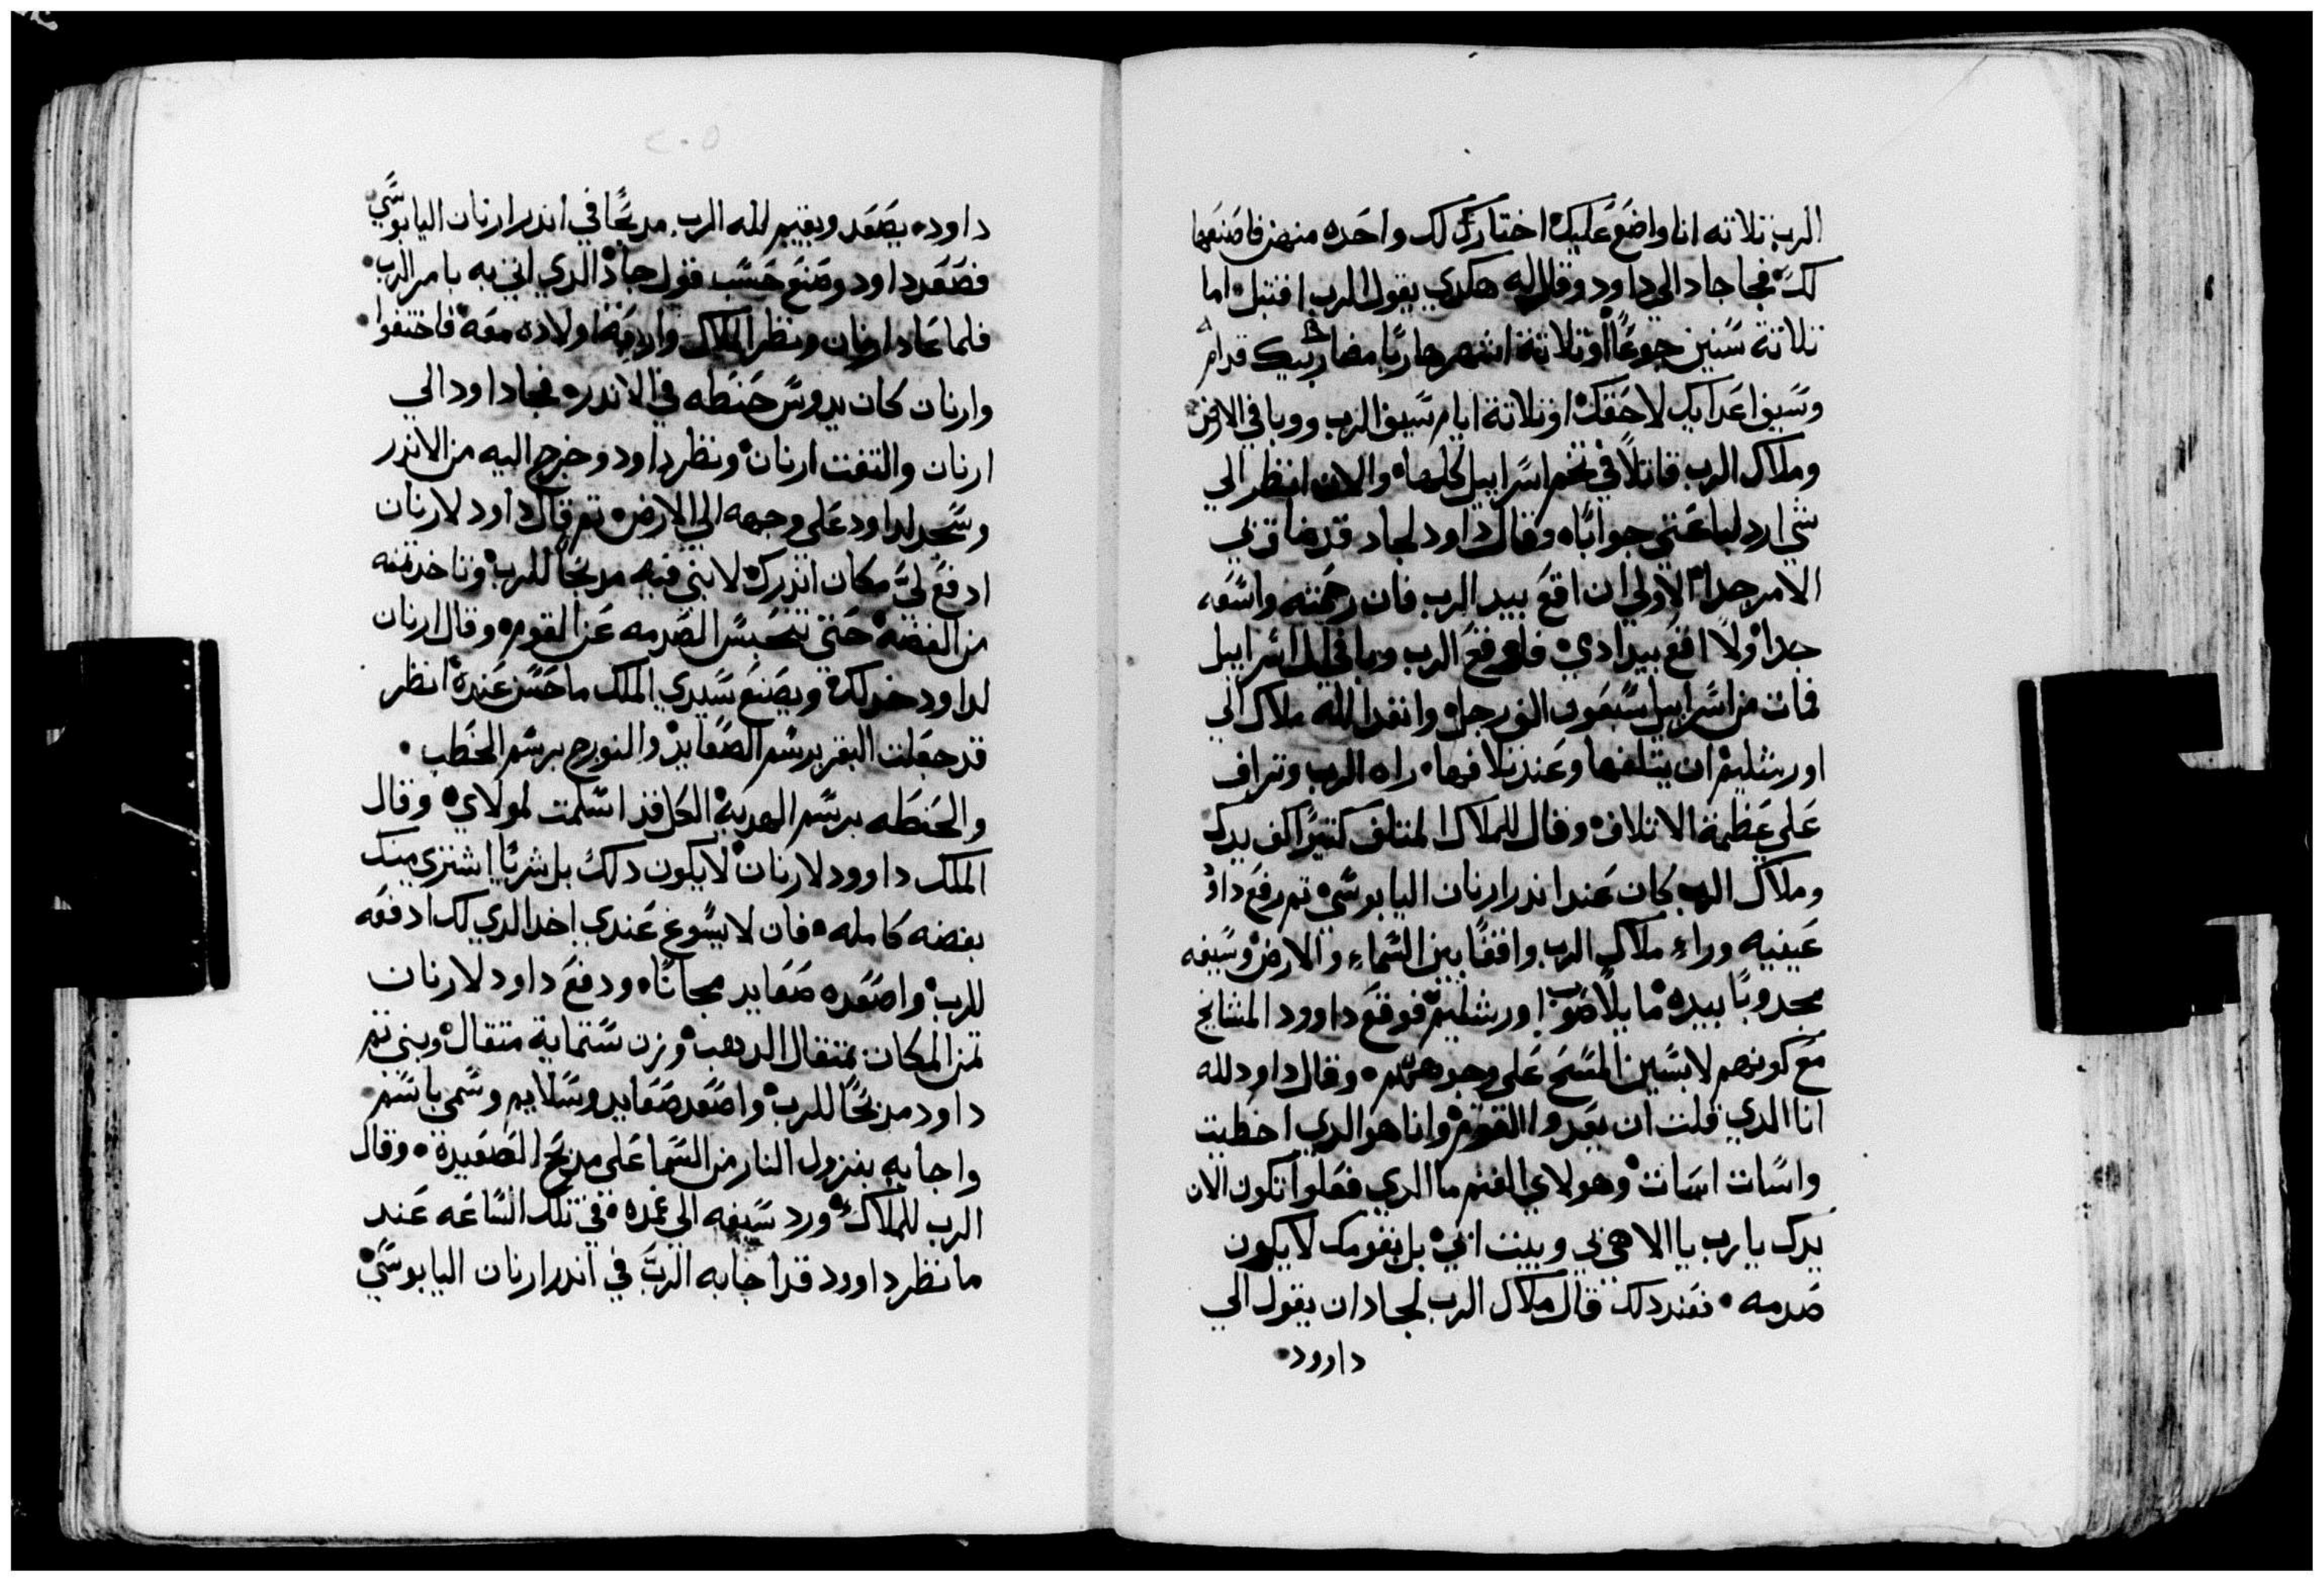 الرب تلاته انا واضع عليك اختارك لك واحده منهن فاصنعها
لك فجا جاد الي داود وقال له هكدي يقول الرب اقتبل اما
تلاتة سنين جوعًا او تلاتة اشهر هاربًا مضاربيك قدام
وسيف اعدايك لاحقك او تلاتة ايام سيف الرب ووبا في الارض
وملاك الرب قاتلاً في تخم اسراييل كلها والان انظر الي
شي ارد لباعتي جوابًا وقال داود لجاد قد ضاق بي
الامر جدا الاولي ان اقع بيد الرب فان رحمته واسعه
جدا ولا اقع بيد ادي فاوقع الرب وبا في ال اسراييل
فمات من اسراييل سبعون الف رجل وانفد الله ملاك الي
اورشليم ان يتلفها وعند تلافها راه الرب وتراف
علي عظمة الاتلاف وقال للملاك المتلف كتيرًا كف يدك
وملاك الرب كان عند اندر ارنان اليابوسي تم رفع داود
عينيه وراء ملاك الرب واقفًا بين السماء والارض وسيفه
مجدوبًا بيده مايلاً صوب اورشليم فوقع داوود المشايخ
مع كونهم لابسين المسح علي وجوههم وقال داود لله
انا الدي قلت ان يعدوا القوم وانا هو الدي اخطيت
واسات اسات وهولاي الغنم ما الدي فعلوا تكون الان
يدك يارب يا الاهي بي وبيت ابي بل بقومك لا يكون
صدمه فعند دلك قال ملاك الرب لجاد ان يقول الي
داوود
٢٠٥
داود يصعد ويقيم لله الرب مدبحًا في اندر ارنان اليابوسي
فصعد داود وصنع حسب قول جاد الدي اتي به بامر الرب
فلما عاد ارنان ونظر الملاك واربعة اولاده معه فاختفوا
وارنان كان يدوس حنطه في الاندر فجا داود الي
ارنان والتفت ارنان ونظر داود وخرج اليه من الاندر
وسجد لداود علي وجهه الي الارض تم قال داود لارنان
ادفع لي مكان اندرك لابني فيه مدبحًا للرب وتاخد تمنه
من الفضه حتي تنحبس الصدمه عن القوم وقال ارنان
لداود خد لك ويصنع سيدي الملك ما حسن عنده انظر
قد جعلت البقر برسم الصعايد والنورج برسم الحطب
والحنطه برسم الهديه الكل قد اسلمت لمولاي وقال
الملك داوود لارنان لا يكون دلك بل شريًا اشتري منك
بفضه كامله فان لا يسوغ عندي اخد الدي لك ادفعه
للرب واصعده صعايد مجانًا ودفع داود لارنان
تمن المكان بمتقال الدهب وزن ستماية متقال وبني تم
داود مدبحًا للرب واصعد صعايد وسلايم وسمي باسم
واجابه بنزول النار من السما علي مدبح الصعيدة وقال
الرب للملاك ورد سيفه الي غمده في تلك الساعه عند
ما نظر داوود قد اجابه الرب في اندر ارنان اليابوسي